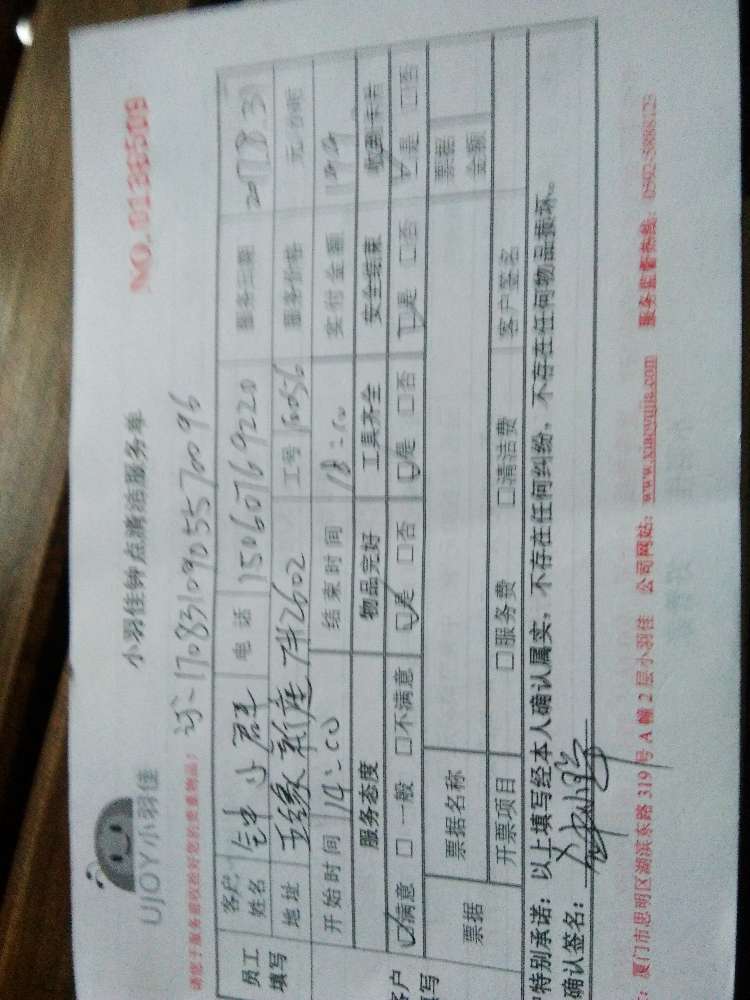 UJOY小羽佳
小羽佳钟点清洁服务单
NO.0138509
请您于服务前收拾好您的贵重物品!
170831090557 0096
员工填写 客户姓名 钟小群 电话 15060769220 服务日期 2017 8 31
地址 2602 工号 10056 服务价格 元/小时
开始时间 14:00 结束时间 18:00 实付金额
服务态度 物品完好 工具齐全 安全结束 收到卡否
☑满意 □一般 □不满意 ☑是 □否 ☑是 □否 ☑是 □否 ☑是 □否
客户填写 票据 票据名称 票据金额
开票项目 □服务费 □清洁费 客户签名
特别承诺:以上填写经本人确认属实,不存在任何纠纷,不存在任何物品损坏。
确认签名:
厦门市思明区湖滨东路 319 号 A 幢 2 层小羽佳 公司网站:www.xiaoyujia.com 服务监督热线:0592-5888123